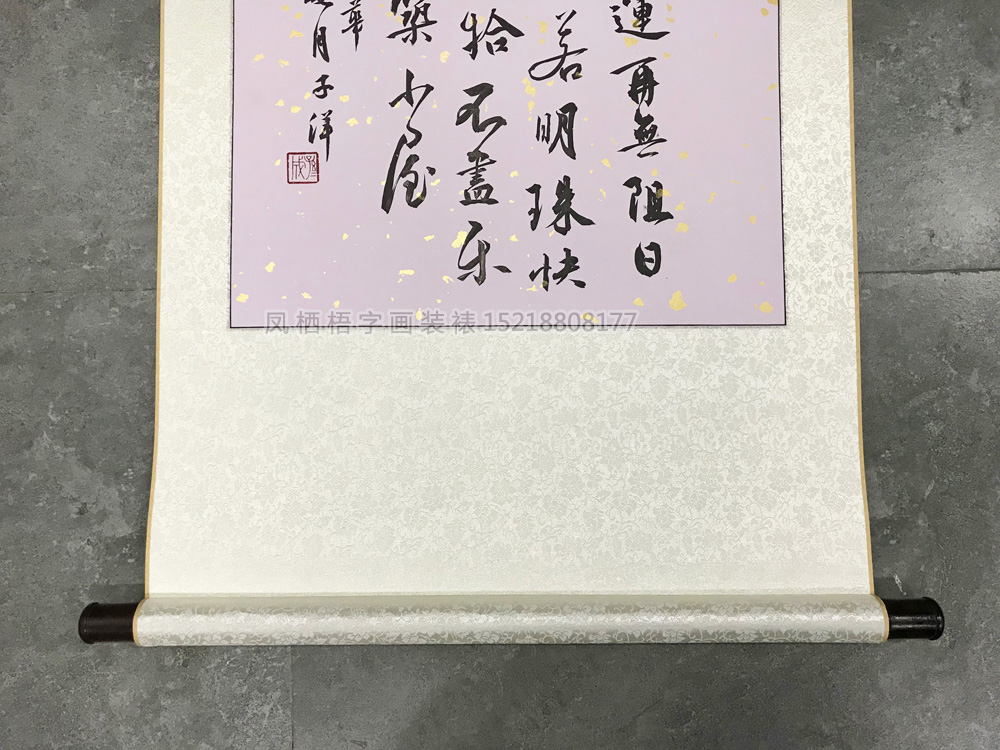 運再無阻日
若明珠快
拾不盡乐
築小
華
月子洋
凤栖梧字画装裱 15218808177